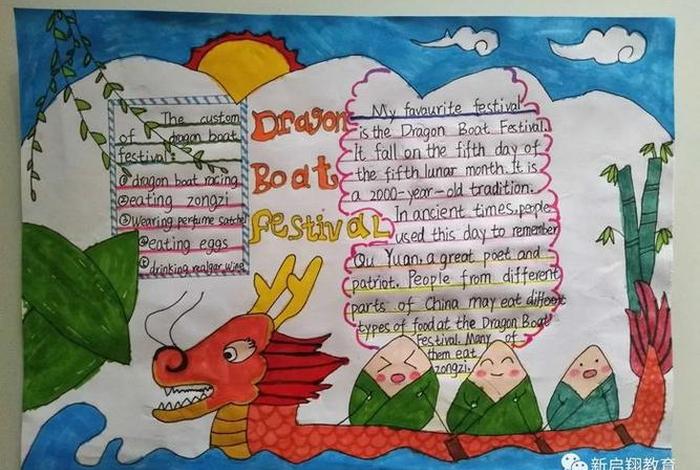 The custom
of dragon boat
festival:
①dragon boat racing
②eating zongzi
③wearing perfume satchel
④eating eggs
⑤drinking realgar wine
Dragon
Boat
Festival
My favaurite festival
is the Dragon Boat Festival.
It fall on the fifth day of
the fifth lunar month. It is
a 2000-year-old tradition.
In ancient times, people
used this day to remember
Qu Yuan, a great poet and
patriot. People from different
parts of China may eat different
types of food at the Dragon Boat
Festival. Many of
them eat
zongzi.
新启翔教育